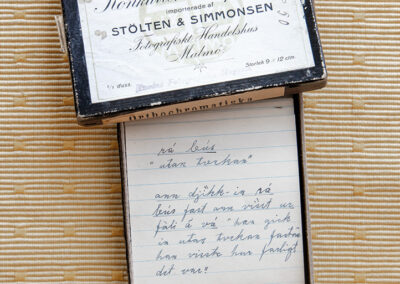 importerade af
STÖLTEN & SIMMONSEN
Fotografiskt Handelshus
Malmö
1/2 duss. Storlek 9 × 12 cm
Orthochromatiska
rå bús
"utan tvekan"
ann djikk-in rå
bús fast ann visst ur
fåli å vá "han gick
in utan tvekan fastän
han visste hur farligt
det var"